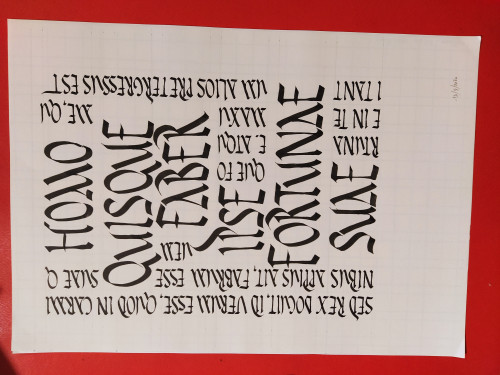 HOMO
QUISQUE
FABER
IPSE
FORTUNAE
SUAE
SED REX DOCUIT, ID VERUM ESSE, QUOD IN CARMI
NIBUS APPIUS AIT, FABRUM ESSE SUAE Q
UEM
QUE FO
RTUNA
E, ATQU
E IN TE
MAXU
ME, QU
I TANT
UM ALIOS PRETERGRESSUS EST